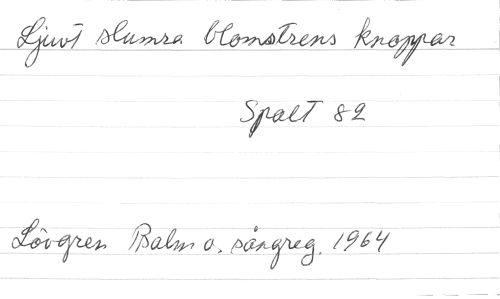 Ljuvt slumra blomstrens knoppar
Spalt 82
Lövgren Psalm o. sångreg. 1964